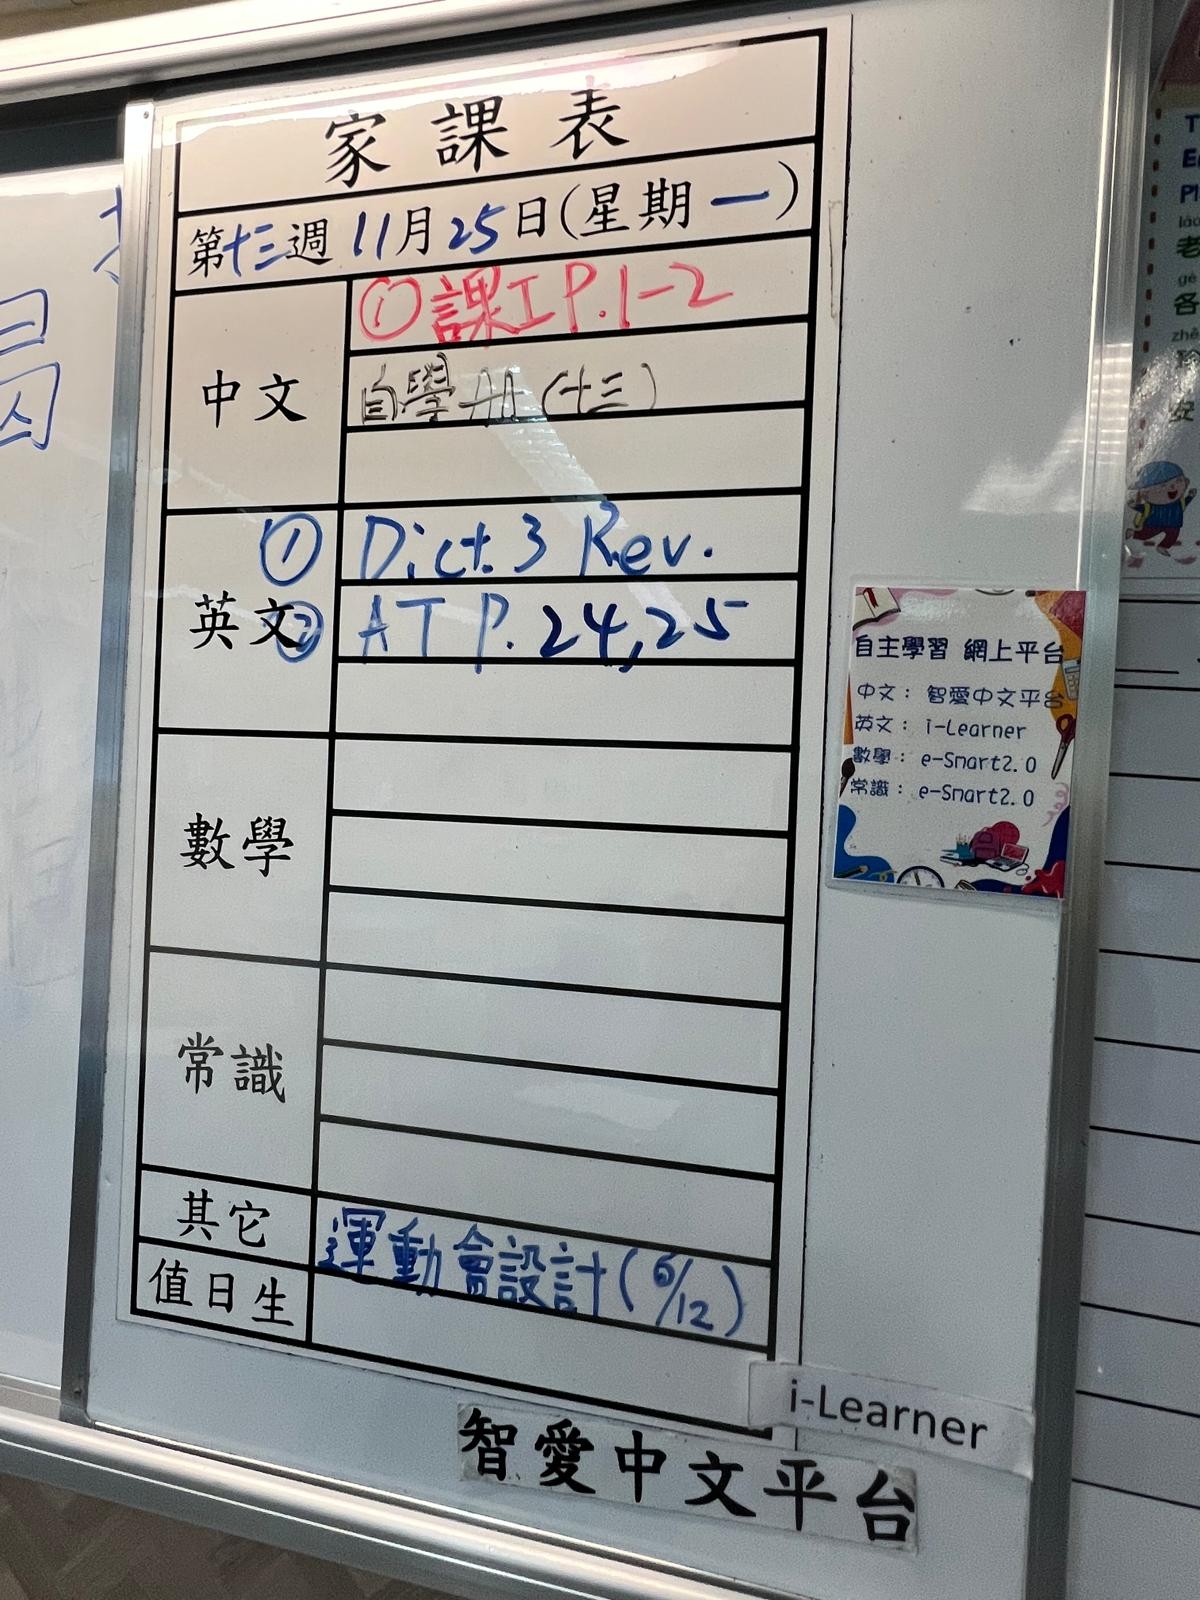 家課表
第十三週 11月25日(星期一)
中文
① 課工 P.1-2
自學册 (十三)
英文
① Dict. 3 Rev.
② AT P. 24,25
數學
常識
其它
運動會設計(6/12)
值日生
i-Learner
智愛中文平台
自主學習 網上平台
中文： 智愛中文平台
英文： i-Learner
數學： e-Smart2.0
常識： e-Smart2.0
老
各